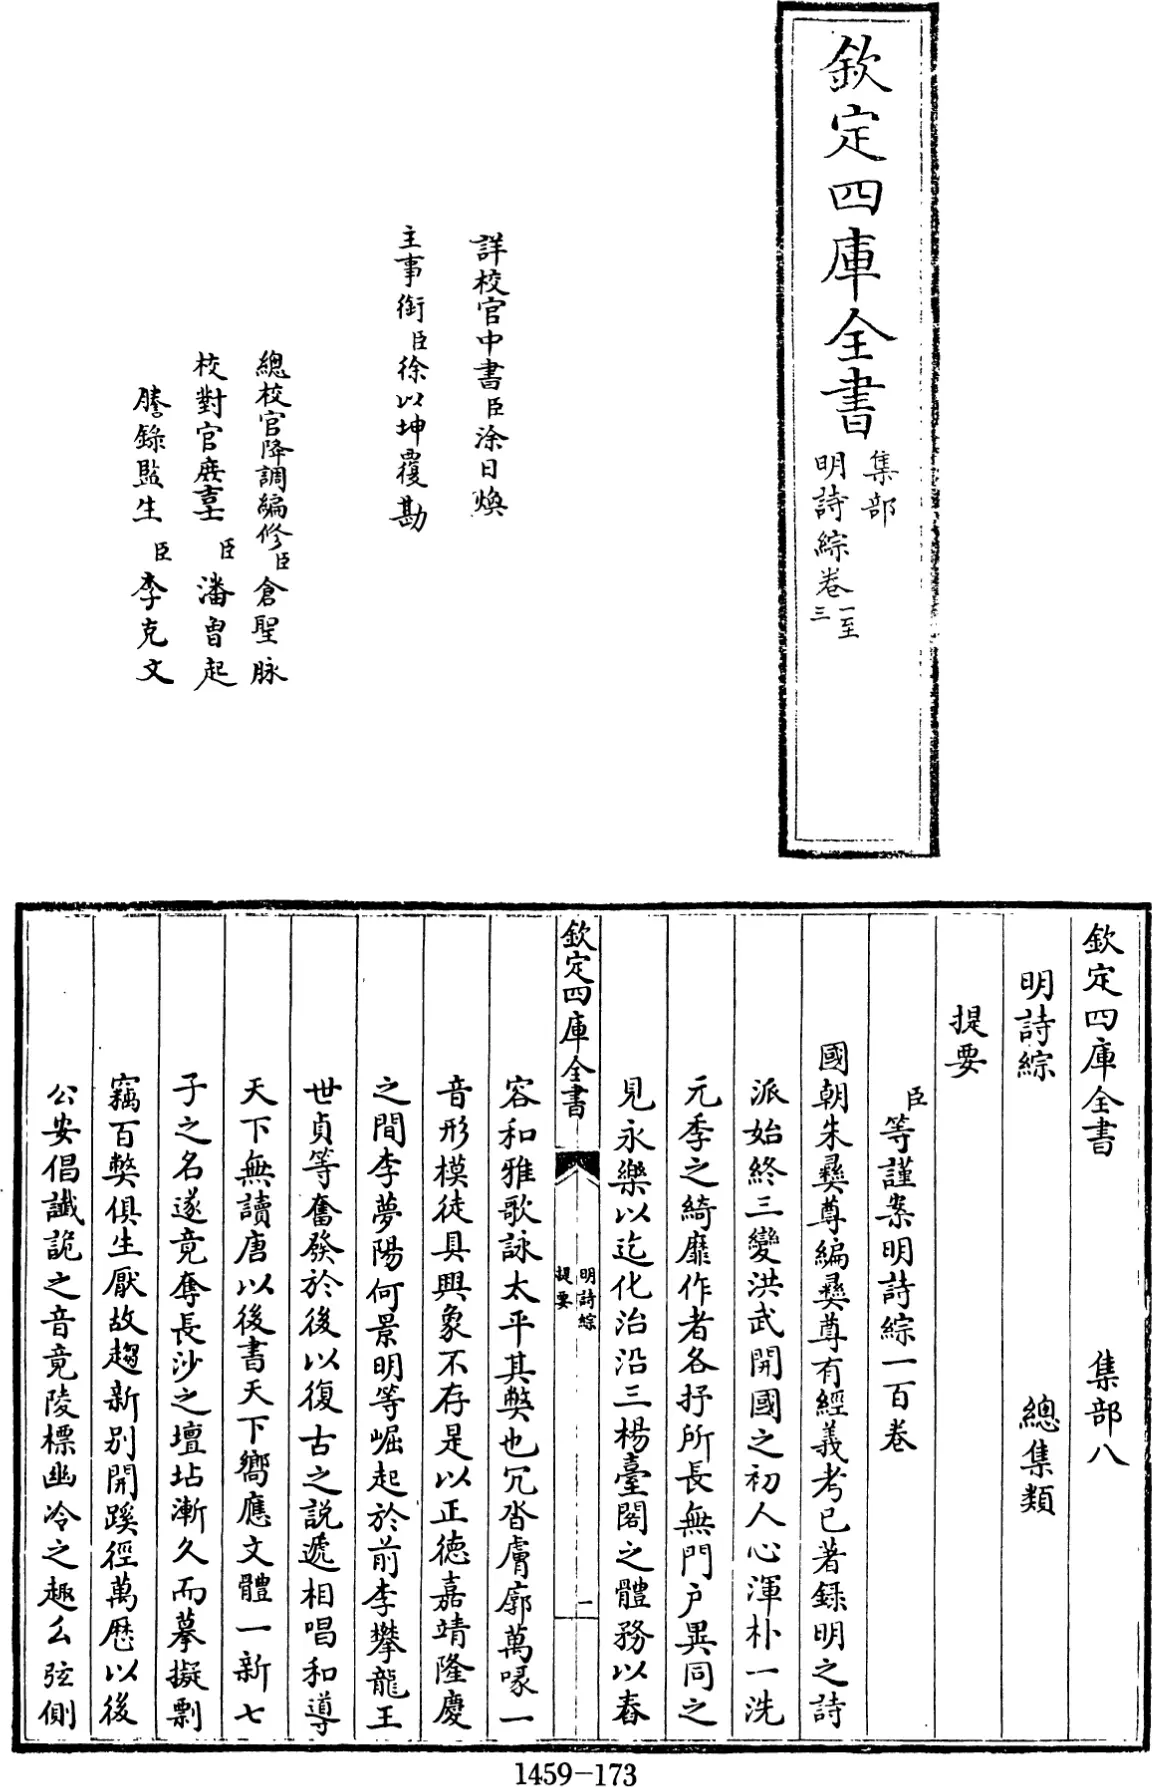 欽定四庫全書
集部
明詩綜卷一至三
詳校官中書臣涂日煥
主事銜臣徐以坤覆勘
總校官降調編修臣倉聖脉
校對官庶吉士臣潘曾起
謄錄監生臣李克文
欽定四庫全書　集部八
明詩綜　總集類
提要
臣等謹案明詩綜一百卷
國朝朱彛尊編彛尊有經義考已著録明之詩
派始終三變洪武開國之初人心渾朴一洗
元季之綺靡作者各抒所長無門户異同之
見永樂以迄化治沿三楊臺閣之體務以舂
欽定四庫全書
明詩綜
提要
一
容和雅歌詠太平其獘也冗沓膚廓萬喙一
音形模徒具興象不存是以正徳嘉靖隆慶
之間李夢陽何景明等崛起於前李攀龍王
世貞等奮發於後以復古之説遞相唱和導
天下無讀唐以後書天下嚮應文體一新七
子之名遂竟奪長沙之壇坫漸久而摹擬剽
竊百獘俱生厭故趨新別開蹊徑萬厯以後
公安倡讖詭之音竟陵標幽冷之趣么弦側
1459-173